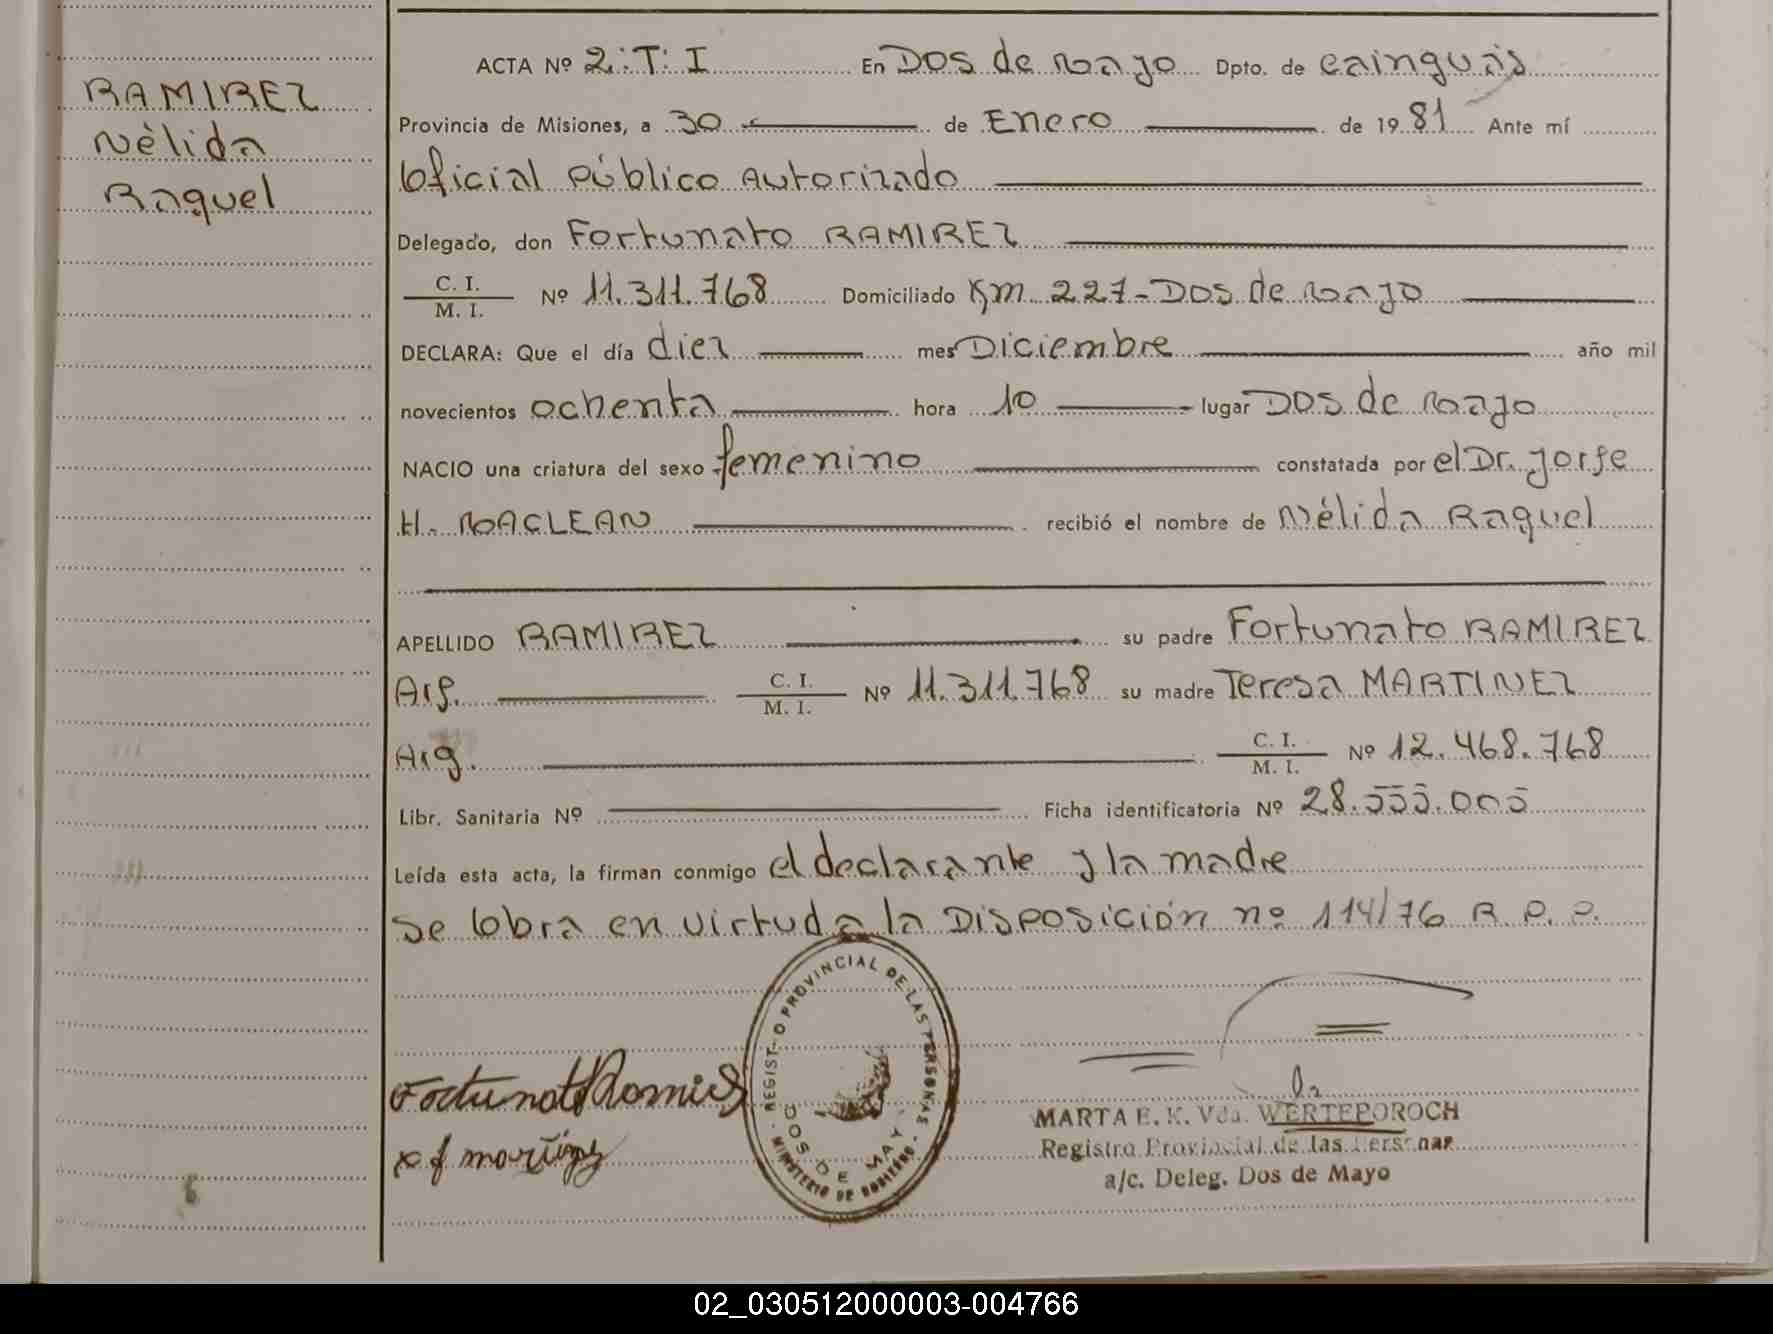 RAMIREZ
Nélida
Raquel
ACTA Nº 2:T:I En Dos de Mayo Dpto. de Cainguás
Provincia de Misiones, a 30 de Enero de 1981 Ante mí
Oficial Público Autorizado
Delegado, don Fortunato RAMIREZ
C. I. / M. I. Nº 11.311.768 Domiciliado Km 227-Dos de Mayo
DECLARA: Que el día diez mes Diciembre año mil
novecientos ochenta hora 10 lugar Dos de Mayo
NACIO una criatura del sexo femenino constatada por el Dr. Jorge
H. MACLEAN recibió el nombre de Nélida Raquel
APELLIDO RAMIREZ su padre Fortunato RAMIREZ
Arg. C. I. / M. I. Nº 11.311.768 su madre Teresa MARTINEZ
Arg. C. I. / M. I. Nº 12.468.768
Libr. Sanitaria Nº Ficha identificatoria Nº 28.555.005
Leída esta acta, la firman conmigo el declarante y la madre
se lobra en virtud a la Disposición nº 114/76 R.P.P.
REGISTRO PROVINCIAL DE LAS PERSONAS
DOS DE MAYO
MINISTERIO DE GOBIERNO
MARTA E. K. Vda. WERTEPOROCH
Registro Provincial de las Personas
a/c. Deleg. Dos de Mayo
02_030512000003-004766